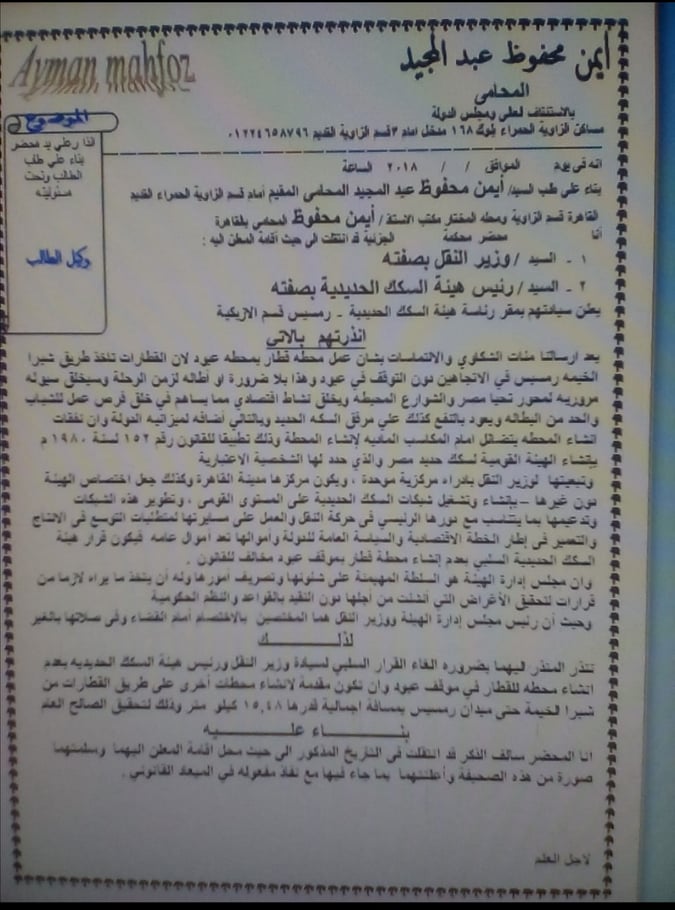 Ayman mahfoz
أيمن محفوظ عبد المجيد
المحامى
بالاستئناف لعلى ومجلس الدولة
مساكن الزاوية الحمراء بلوك ١٦٨ مدخل امام ٣ قسم الزاوية القديم ٠١٢٢٤٦٥٨٧٩٦
الموضوع
انذار على يد محضر
بناء على طلب
الطالب وتحت
مسئوليته
وكيل الطالب
انه فى يوم الموافق / / ٢٠١٨ الساعة
بناء على طلب السيد/ أيمن محفوظ عبد المجيد المحامى المقيم أمام قسم الزاوية الحمراء القديم
القاهرة قسم الزاوية ومحله المختار مكتب الاستاذ / أيمن محفوظ المحامى بالقاهرة
أنا محضر محكمة الجزئية قد انتقلت الى حيث أقامة المعلن اليه :
١ - السيد / وزير النقل بصفته
٢ - السيد / رئيس هيئة السكك الحديدية بصفته
يعلن سيادتهم بمقر رئاسة هيئة السكك الحديدية - رمسيس قسم الازبكية
انذرتهم بالاتى
بعد ارسالنا مئات الشكاوي والالتماسات بشان عمل محطه قطار بمحطه عبود لان القطارات تاخذ طريق شبرا
الخيمه رمسيس في الاتجاهين دون التوقف في عبود وهذا بلا ضرورة او اطاله لزمن الرحلة وسيخلق سيوله
مروريه لمحور تحيا مصر والشوارع المحيطه ويخلق نشاط اقتصادي مما يساهم في خلق فرص عمل للشباب
والحد من البطاله ويعود بالنفع كذلك علي مرفق السكه الحديد وبالتالي أضافه لميزانيه الدولة وان نفقات
انشاء المحطه يتضائل امام المكاسب الماديه لإنشاء المحطة وذلك تطبيقا للقانون رقم ١٥٢ لسنة ١٩٨٠ م
بإنشاء الهيئة القومية لسكك حديد مصر والذي حدد لها الشخصية الاعتبارية
وتبعيتها لوزير النقل بادراه مركزية موحدة ، ويكون مركزها مدينة القاهرة وكذلك جعل اختصاص الهيئة
دون غيرها – بإنشاء وتشغيل شبكات السكك الحديدية على المستوى القومى ، وتطوير هذه الشبكات
وتدعيمها بما يتناسب مع دورها الرئيسى فى حركة النقل والعمل على مسايرتها لمتطلبات التوسع فى الانتاج
والتعمير فى إطار الخطة الاقتصادية والسياسة العامة للدولة وأموالها تعد أموال عامه فيكون قرار هيئة
السكك الحديدية السلبي بعدم إنشاء محطة قطار بموقف عبود مخالف للقانون .
وان مجلس إدارة الهيئة هو السلطة المهيمنة على شئونها وتصريف أمورها وله أن يتخذ ما يراه لازما من
قرارات لتحقيق الأغراض التي أنشئت من أجلها دون التقيد بالقواعد والنظم الحكومية
وحيث أن رئيس مجلس إدارة الهيئة ووزير النقل هما المختصين بالاختصام أمام القضاء وفى صلاتها بالغير
لذلـــــــك
تنذر المنذر اليهما بضروره الغاء القرار السلبي لسيادة وزير النقل ورئيس هيئة السكك الحديديه بعدم
انشاء محطه للقطار في موقف عبود وان تكون مقدمة لانشاء محطات أخرى على طريق القطارات من
شبرا الخيمة حتى ميدان رمسيس بمسافة اجمالية قدرها ١٥,٤٨ كيلو متر وذلك لتحقيق الصالح العام
بنـــــــاء عليـــــــه
انا المحضر سالف الذكر قد انتقلت فى التاريخ المذكور الى حيث محل اقامة المعلن اليهما وسلمتهما
صورة من هذه الصحيفة وأعلنتهما بما جاء فيها مع نفاذ مفعوله في الميعاد القانوني .
لاجل العلم